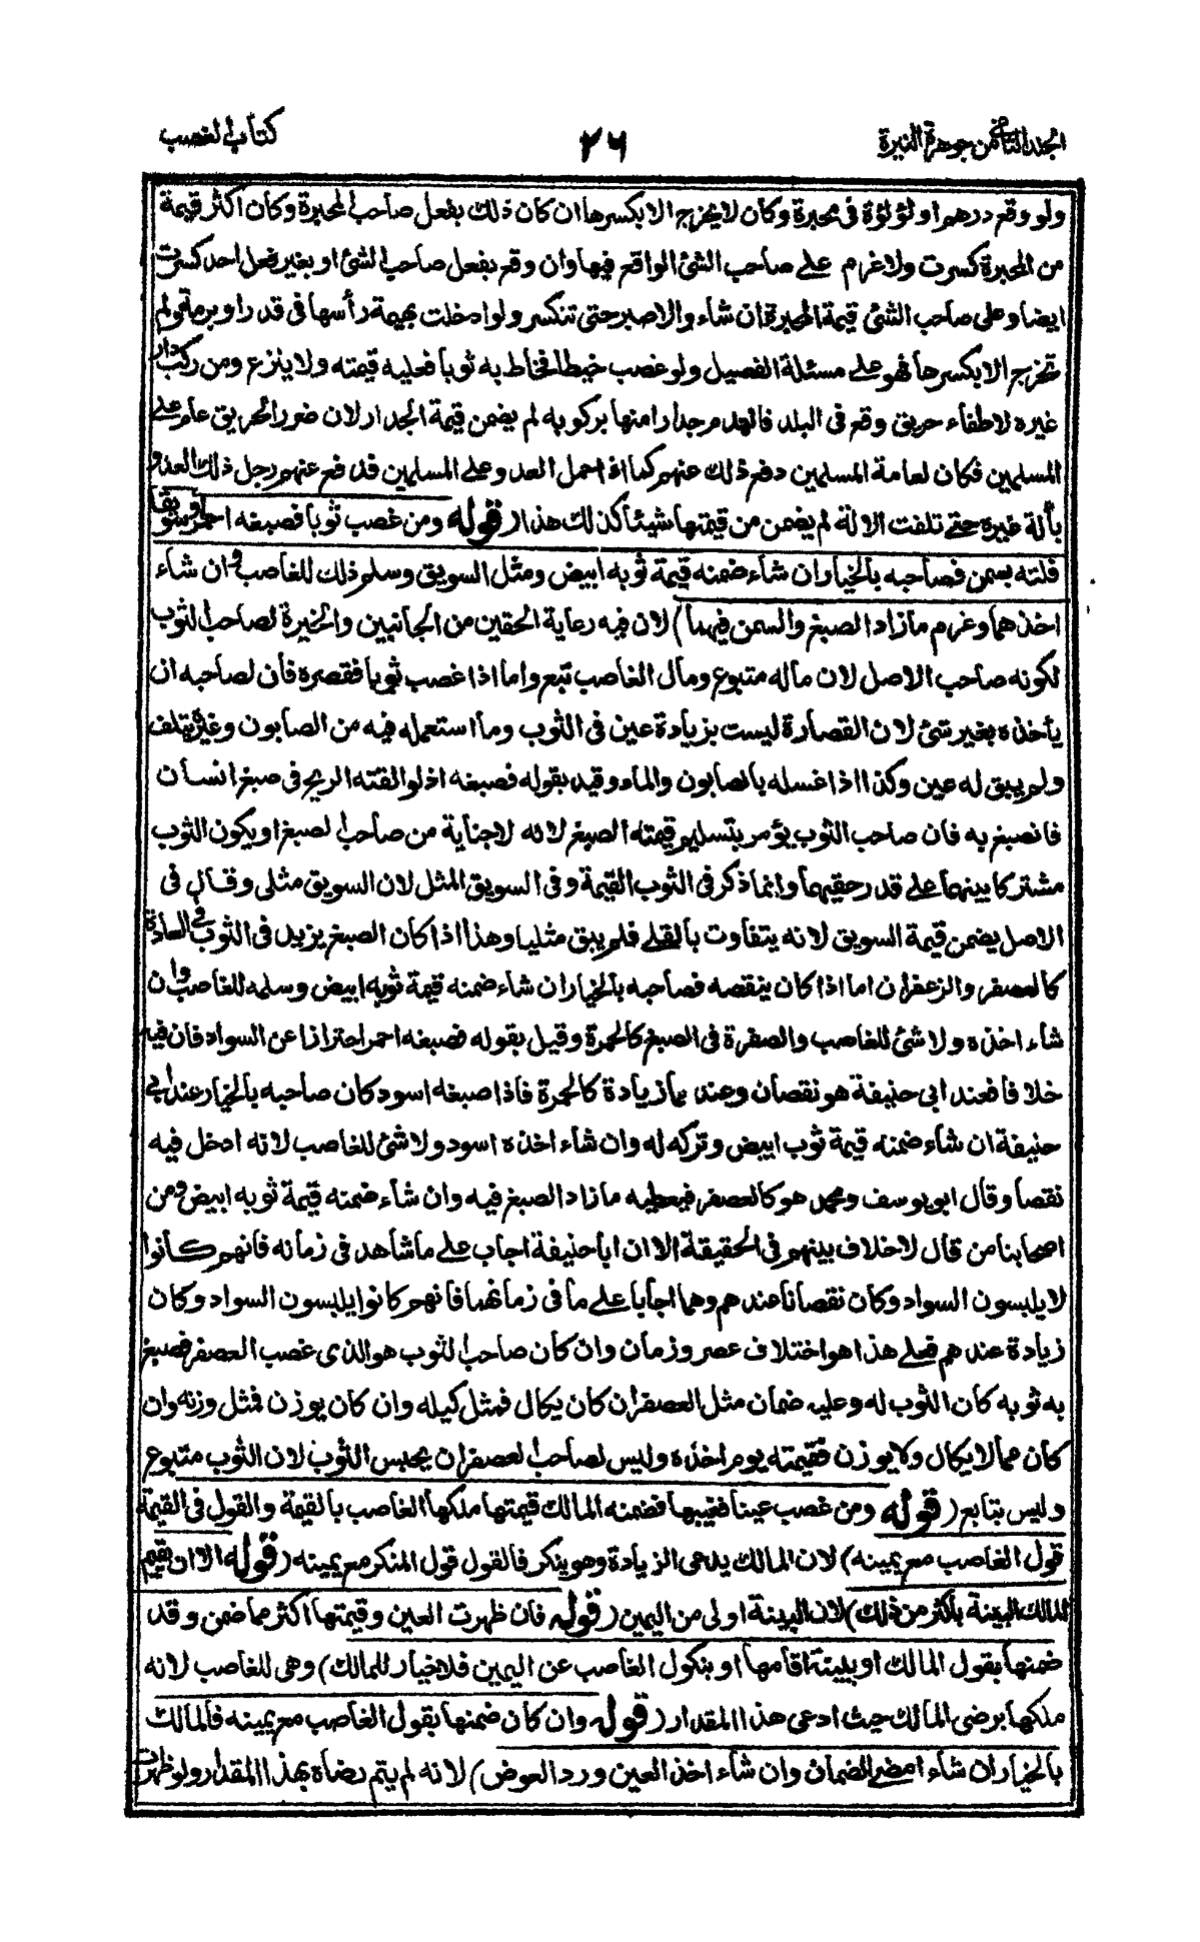 المجلد الثاني من جوهرة النيرة
٢٦
كتاب الغصب
ولو وقع درهم او لؤلؤة فى محبرة وكان لا يخرج الا بكسرها ان كان ذلك بفعل صاحب المحبرة وكان اكثر قيمة
من المحبرة كسرت ولا غرم على صاحب الشئ الواقع فيها وان وقع بفعل صاحب الشئ او بغير فعل احد كسرت
ايضا وعلى صاحب الشئ قيمة المحبرة ان شاء والا صبر حتى تنكسر ولو ادخلت بهيمة رأسها فى قدر او برمة ولم
تخرج الا بكسرها فهو على مسئلة الفصيل ولو غصب خيطا فخاط به ثوبا فعليه قيمته ولا ينزع ومن ركب دار
غيره لاطفاء حريق وقع فى البلد فانهدم جدار منها بركوبه لم يضمن قيمة الجدار لان ضرر الحريق عام على
المسلمين فكان لعامة المسلمين دفع ذلك عنهم كما اذا حمل العدو على المسلمين فدفع عنهم رجل ذلك العدو
بألة غيره حتى تلفت الالة لم يضمن من قيمتها شيئا كذلك هذا (قوله ومن غصب ثوبا فصبغه احمر او سويقا
فلته بسمن فصاحبه بالخيار ان شاء ضمنه قيمة ثوبه ابيض ومثل السويق وسلم ذلك للغاصب وان شاء
اخذهما وغرم ما زاد الصبغ والسمن فيهما) لان فيه رعاية الحقين من الجانبين والخيرة لصاحب الثوب
لكونه صاحب الاصل لان ماله متبوع ومال الغاصب تبع واما اذا غصب ثوبا فقصره فان لصاحبه ان
يأخذه بغير شئ لان القصارة ليست بزيادة عين فى الثوب وما استعمله فيه من الصابون وغيره يتلف
ولم يبق له عين وكذا اذا غسله بالصابون والماء وقيد بقوله فصبغه اذ لو القته الريح فى صبغ انسان
فانصبغ به فان صاحب الثوب يؤمر بتسليم قيمته الصبغ لانه لا جناية من صاحب الصبغ او يكون الثوب
مشتركا بينهما على قدر حقيهما وانما ذكر فى الثوب القيمة وفى السويق المثل لان السويق مثلى وقال فى
الاصل يضمن قيمة السويق لانه يتفاوت بالقلى فلم يبق مثليا وهذا اذا كان الصبغ يزيد فى الثوب فى العادة
كالعصفر والزعفران اما اذا كان ينقصه فصاحبه بالخيار ان شاء ضمنه قيمة ثوبه ابيض وسلمه للغاصب وان
شاء اخذه ولا شئ للغاصب والصفرة فى الصبغ كالحمرة وقيل بقوله فصبغه احمر احترازا عن السواد فان فيه
خلافا فعند ابى حنيفة هو نقصان وعندهما زيادة كالحمرة فاذا صبغه اسود كان صاحبه بالخيار عند ابى
حنيفة ان شاء ضمنه قيمة ثوب ابيض وتركه له وان شاء اخذه اسود ولا شئ للغاصب لانه ادخل فيه
نقصا وقال ابو يوسف ومحمد هو كالعصفر فيعطيه ما زاد الصبغ فيه وان شاء ضمنه قيمة ثوبه ابيض ومن
اصحابنا من قال لا خلاف بينهم فى الحقيقة الا ان ابا حنيفة اجاب على ما شاهد فى زمانه فانهم كانوا
لا يلبسون السواد وكان نقصانا عندهم وهما اجابا على ما فى زمانهما فانهم كانوا يلبسون السواد وكان
زيادة عندهم فعلى هذا هو اختلاف عصر وزمان وان كان صاحب الثوب هو الذى غصب العصفر فصبغ
به ثوبه كان الثوب له وعليه ضمان مثل العصفر ان كان يكال فمثل كيله وان كان يوزن فمثل وزنه وان
كان مما لا يكال ولا يوزن فقيمته يوم اخذه وليس لصاحب العصفر ان يحبس الثوب لان الثوب متبوع
وليس بتابع (قوله ومن غصب عينا فغيبها فضمنه المالك قيمتها ملكها الغاصب بالقيمة والقول فى القيمة
قول الغاصب مع يمينه) لان المالك يدعى الزيادة وهو ينكر فالقول قول المنكر مع يمينه (قوله الا ان يقيم
المالك البينة باكثر من ذلك) لان البينة اولى من اليمين (قوله فان ظهرت العين وقيمتها اكثر مما ضمن وقد
ضمنها بقول المالك او ببينة اقامها او بنكول الغاصب عن اليمين فلا خيار للمالك) وهى للغاصب لانه
ملكها برضى المالك حيث ادعى هذا المقدار (قوله وان كان ضمنها بقول الغاصب مع يمينه فالمالك
بالخيار ان شاء امضى الضمان وان شاء اخذ العين ورد العوض) لانه لم يتم رضاه بهذا المقدار ولو ظهرت